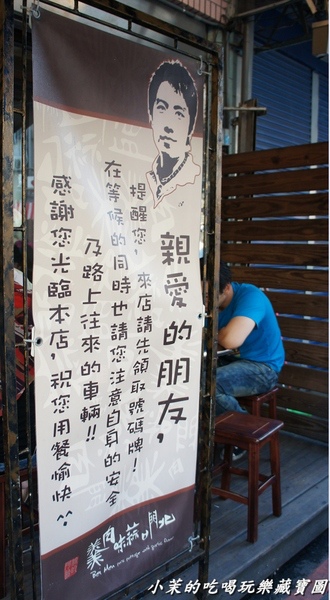 親愛的朋友,
提醒您, 來店請先領取號碼牌!
在等候的同時也請您注意自身的安全
及路上往來的車輛!!
感謝您光臨本店, 祝您用餐愉快^^
北門蒜味
肉羹
小茉的吃喝玩樂藏寶圖